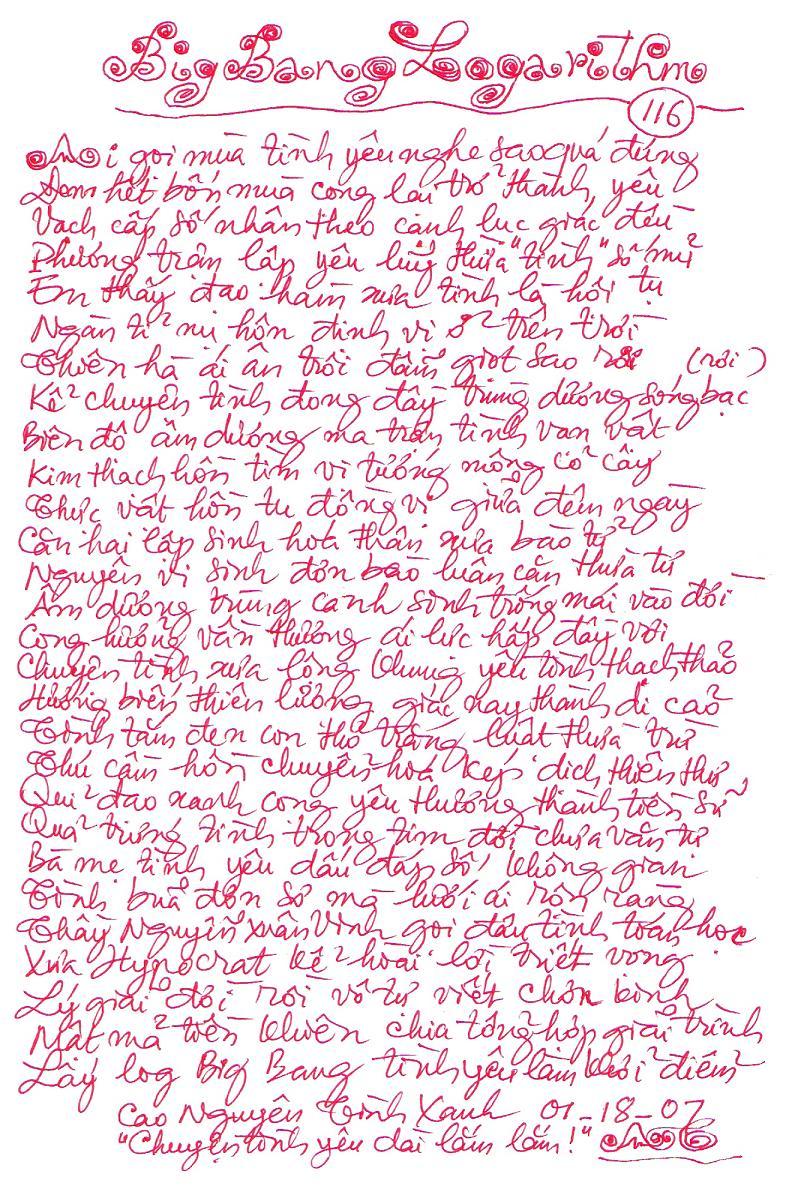 Big Bang Logarithm
116
Ai gọi mùa tình yêu nghe sao quá đúng
Đem hết bốn mùa cộng lại trở thành yêu
Vạch cấp số nhân theo cạnh lục giác đều
Phương trận lập yêu lũy thừa "tình" số mũ
Em thấy đạo hàm xưa tình là hội tụ
Ngàn tỉ nụ hôn định vị ở trên trời
Thiên hà ái ân trôi đẫm giọt sao rơi (rơi)
Kể chuyện tình đong đầy trùng dương sóng bạc
Biên độ âm dương ma trận tình vạn vật
Kim thạch hồn tim vi tướng mộng cỏ cây
Thực vật hồn tụ đồng vị giữa đêm ngày
Căn hai lập sinh hoá thân xưa bào tử
Nguyên vi sinh đơn bào luân căn thừa tự
Âm dương trùng canh sinh trống mái vào đời
Cộng hưởng vấn thương ái lực hấp đầy vơi
Chuyện tình xưa lồng khung yêu tình thạch thảo
Hướng biến thiên lượng giác nay thành di cảo
Tình tấm đen con thỏ trắng luật thừa trừ
Thú cầm hồn chuyển hoá kép dịch thiên thư
Quỉ đạo xanh cong yêu thương thành tiền sử
Quả trứng tình trong tim đời chưa văn tự
Bà mẹ tình yêu dấu đáp số không gian
Tình buổi đơn sơ mà lưới ái rộn ràng
Thầy Nguyễn Xuân Vinh gọi đầu tình toán học
Xưa Hypocrat kể hoài lời triết vọng
Lý giải đôi rời vô tư viết chọn bình
Mật mã tiền khiên chia tổng hợp giải trình
Lấy log Big Bang tình yêu làm khởi điểm
Cao Nguyên Tình Xanh 01-18-07
"Chuyện tình yêu dài lắm lắm!"